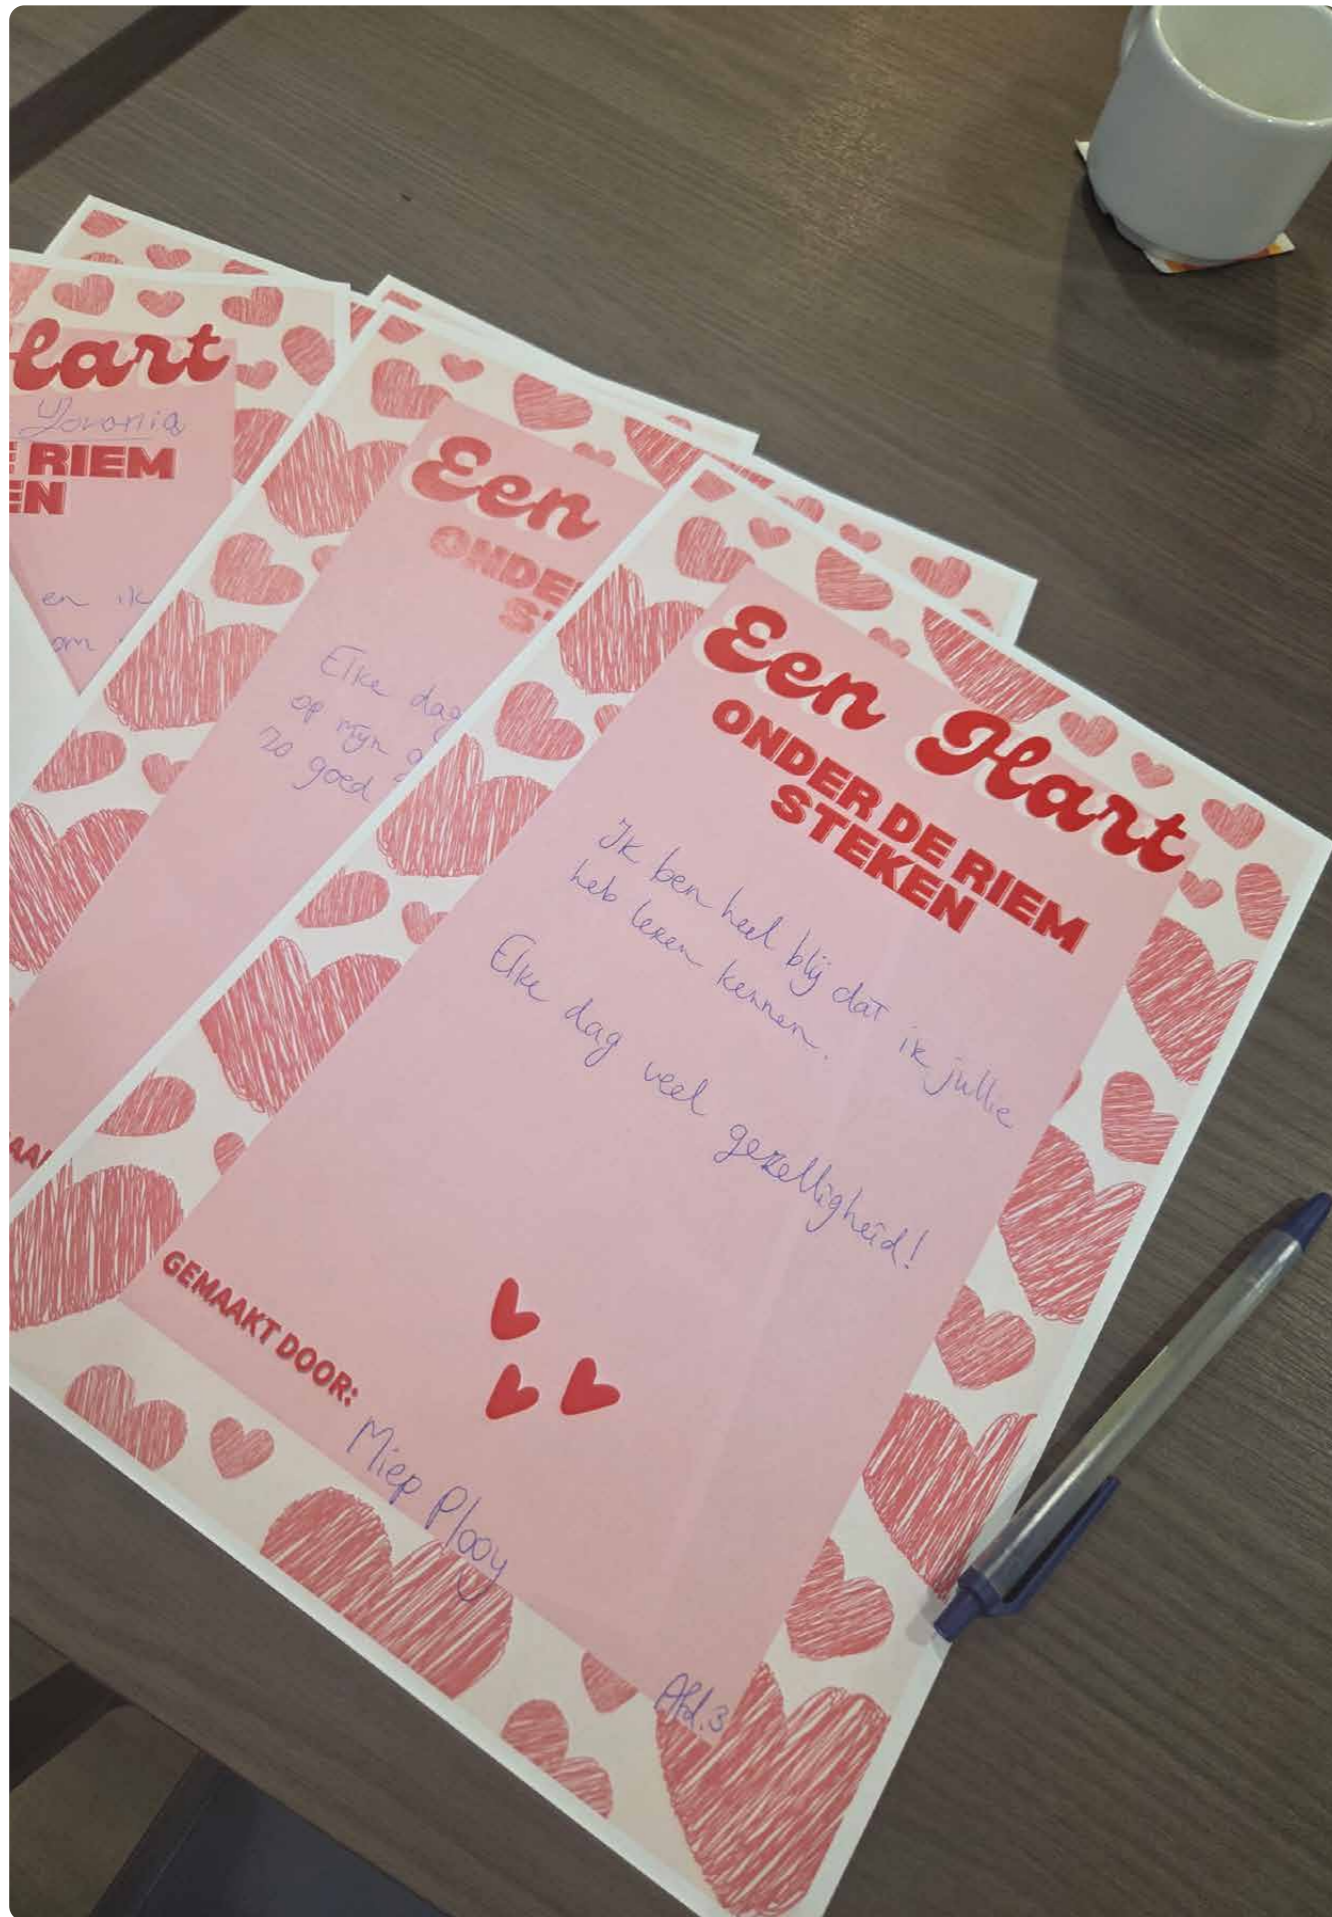 Hart
RIEM
EN
en ik
om
Een
ONDE
S
Elke dag
op mijn
zo goed
Een Hart
ONDER DE RIEM
STEKEN
Ik ben heel blij dat ik jullie
heb leren kennen.
Elke dag veel gezelligheid!
GEMAAKT DOOR:
Miep Plooy
Afd. 3